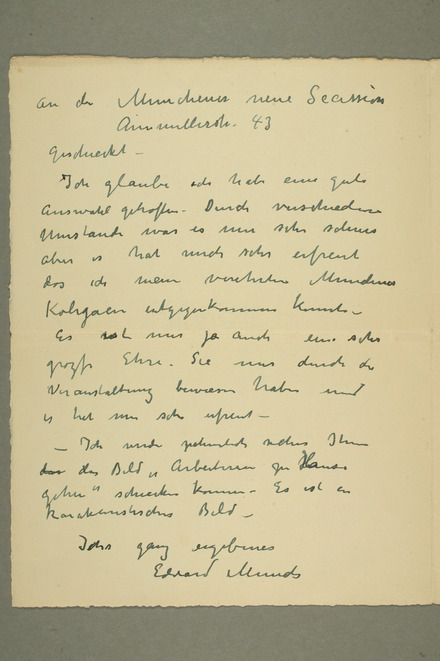 an die Münchener neue Secession
Ainmillerstr. 43
geschickt –
Ich glaube ich habe eine gute
Auswahl getroffen – Durch verschiedene
Umstände war es mir sehr schwer
aber es hat mich sehr erfreut
das ich mein verehrten Münchner
Kolegaen entgegenkommen konnte –
Es ist mir ja auch eine sehr
große Ehre. Sie mir durch die
Veranstaltung bewiesen haben und
es hat mir sehr erfreut –
– Ich werde Ihnen
das Bild „Arbeiteren zu Hause
gehen" schicken können – Es ist ein
karakteristisches Bild –
Ihr ganz ergebenes
Edvard Munch